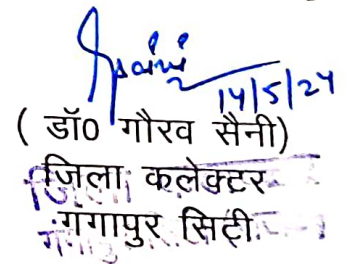 14/5/24
( डॉ0 गौरव सैनी)
जिला कलेक्टर
गंगापुर सिटी.